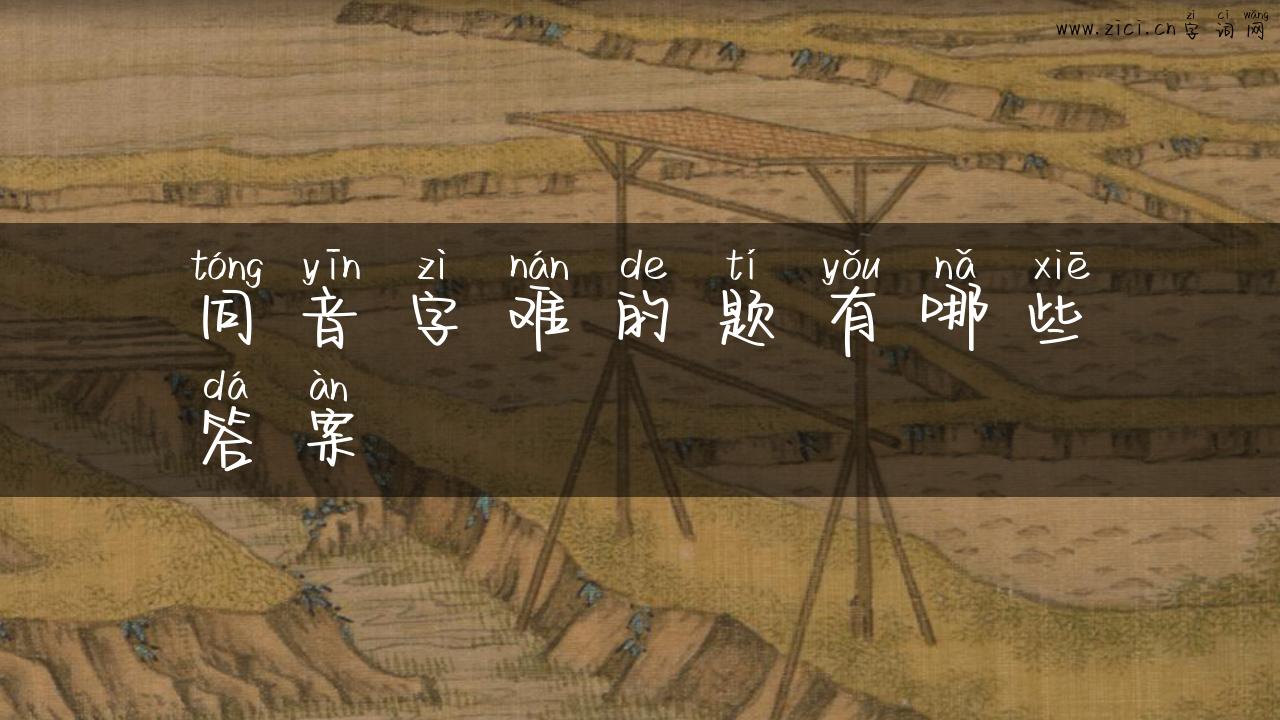 zì cí wǎng
www.zici.cn 字 词 网
tóng yīn zì nán de tí yǒu nǎ xiē
同 音 字 难 的 题 有 哪 些
dá àn
答 案